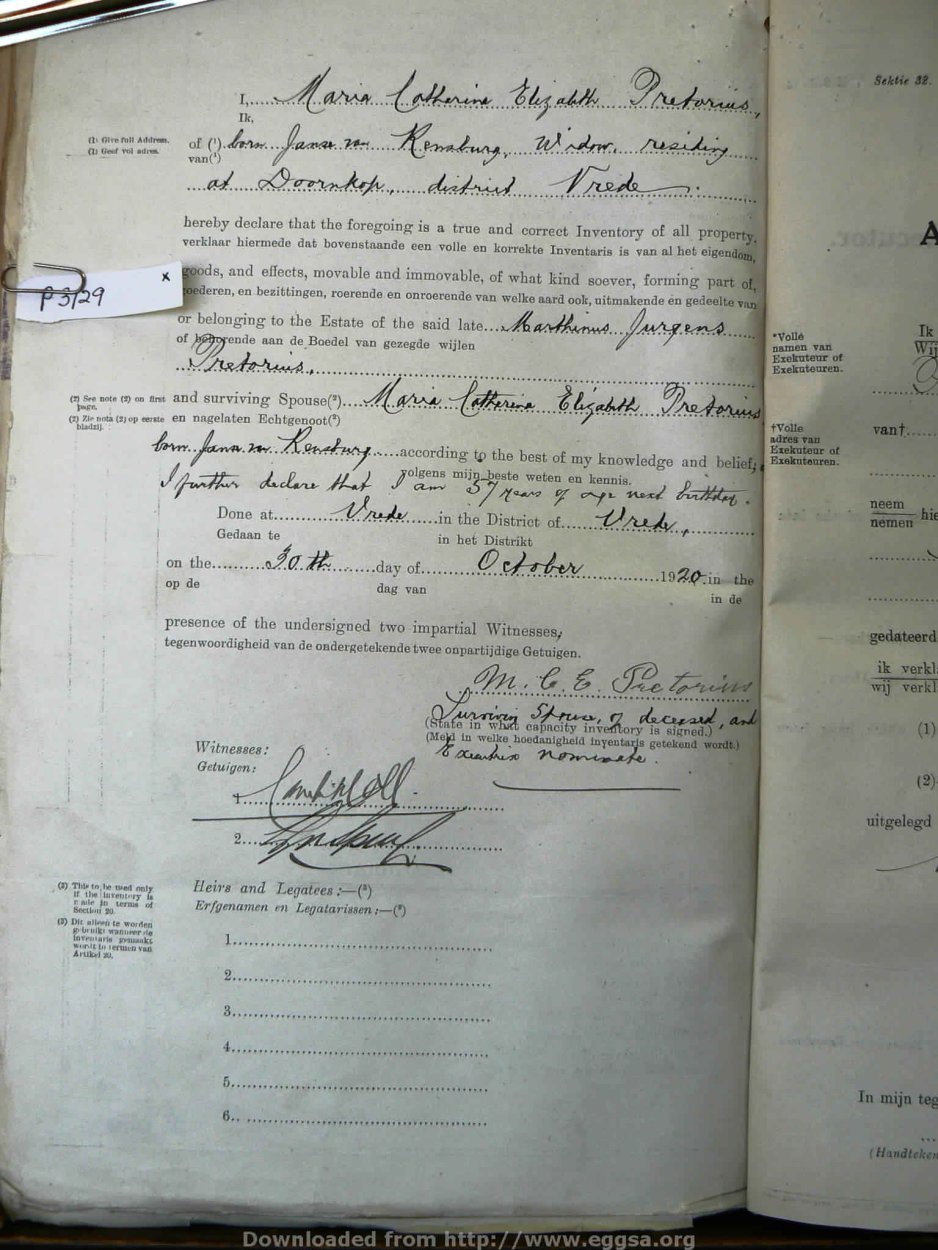 I, Maria Catherina Elizabeth Pretorius,
Ik,
(1) Give full Address.
(1) Geef vol adres.
of (¹) born Janse van Rensburg, Widow, residing
van(¹)
at Doornkop, district Vrede.
hereby declare that the foregoing is a true and correct Inventory of all property,
verklaar hiermede dat bovenstaande een volle en korrekte Inventaris is van al het eigendom,
goods, and effects, movable and immovable, of what kind soever, forming part of,
goederen, en bezittingen, roerende en onroerende van welke aard ook, uitmakende en gedeelte van
P 3/29
x
or belonging to the Estate of the said late Marthinus Jurgens
of behorende aan de Boedel van gezegde wijlen
Pretorius,
(2) See note (2) on first page.
(2) Zie nota (2) op eerste bladzij.
and surviving Spouse(²) Maria Catherina Elizabeth Pretorius
en nagelaten Echtgenoot(²)
born Janse van Rensburg according to the best of my knowledge and belief;
volgens mijn beste weten en kennis.
I further declare that I am 57 years of age next birthday.
Done at Vrede in the District of Vrede,
Gedaan te in het Distrikt
on the 30th day of October 1920 in the
op de dag van in de
presence of the undersigned two impartial Witnesses,
tegenwoordigheid van de ondergetekende twee onpartijdige Getuigen.
M. C. E. Pretorius
Surviving Spouse, of deceased, and
(State in what capacity inventory is signed.)
(Meld in welke hoedanigheid inventaris getekend wordt.)
Executrix nominate.
Witnesses:
Getuigen:
1
2
(3) This to be used only if the inventory is made in terms of Section 20.
(3) Dit alleen te worden gebruikt wanneer de inventaris gemaakt wordt in termen van Artikel 20.
Heirs and Legatees:—(³)
Erfgenamen en Legatarissen:—(³)
1
2
3
4
5
6
Sektie 32.
A
*Volle
namen van
Exekuteur of
Exekuteuren.
Ik
Wij
†Volle
adres van
Exekuteur of
Exekuteuren.
van†
neem
nemen
hie
gedateerd
ik verkl
wij verkl
(1)
(2)
uitgelegd
In mijn teg
(Handteken
Downloaded from http://www.eggsa.org